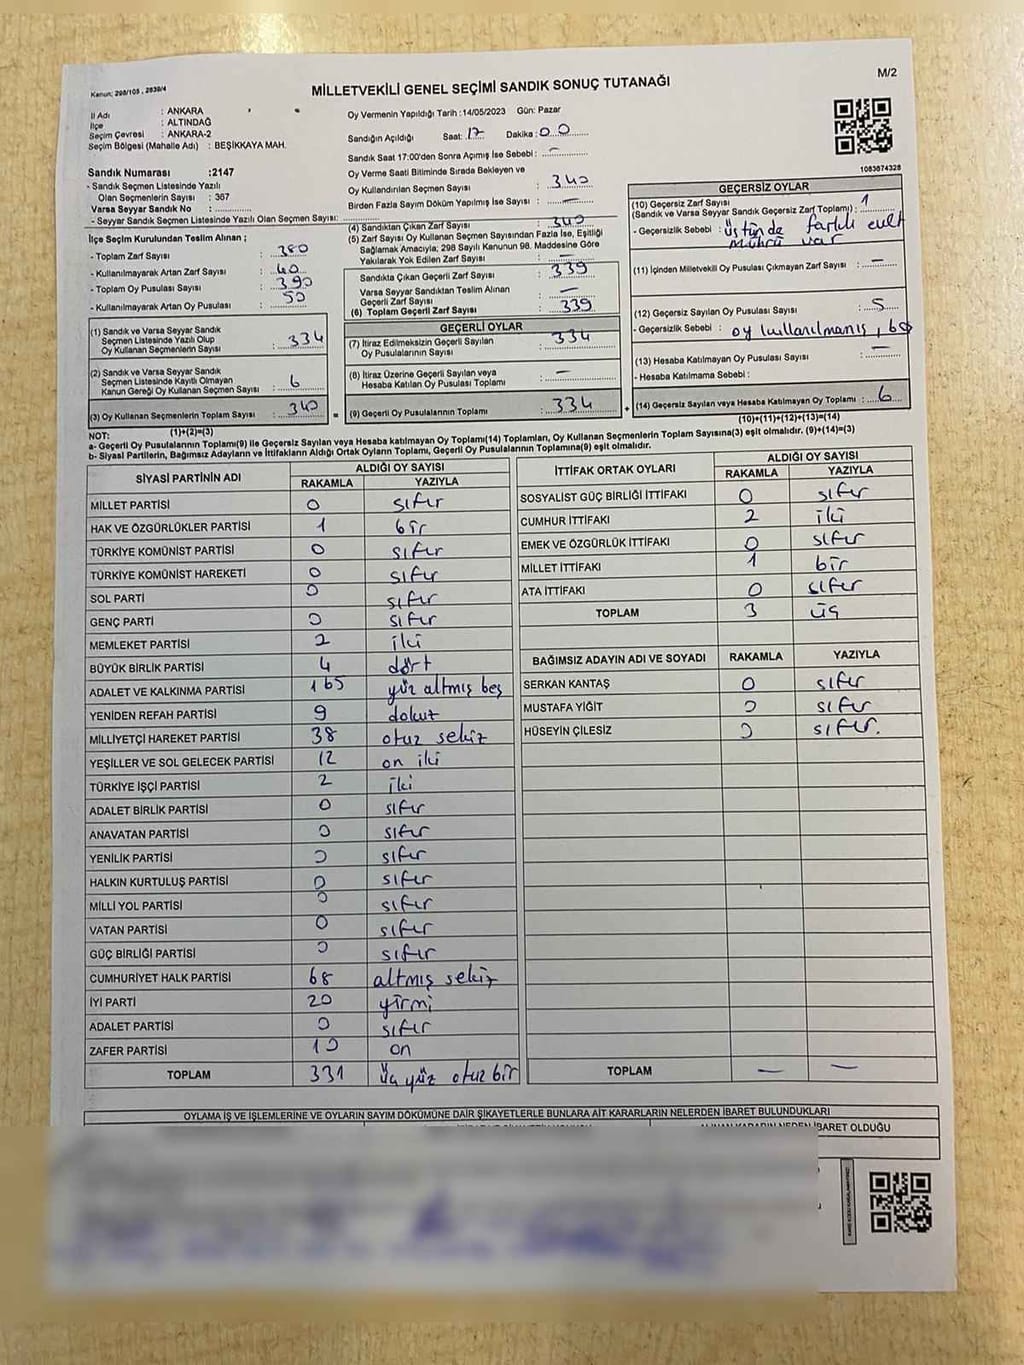 Kanun: 298/105 , 2839/4
MİLLETVEKİLİ GENEL SEÇİMİ SANDIK SONUÇ TUTANAĞI
M/2
İl Adı : ANKARA
İlçe : ALTINDAĞ
Seçim Çevresi : ANKARA-2
Seçim Bölgesi (Mahalle Adı) : BEŞİKKAYA MAH.
Sandık Numarası : 2147
- Sandık Seçmen Listesinde Yazılı
Olan Seçmenlerin Sayısı : 367
Varsa Seyyar Sandık No :
- Seyyar Sandık Seçmen Listesinde Yazılı Olan Seçmen Sayısı:
Oy Vermenin Yapıldığı Tarih :14/05/2023 Gün: Pazar
Sandığın Açıldığı Saat: 17 Dakika: 00
Sandık Saat 17:00'den Sonra Açımış İse Sebebi : —
Oy Verme Saati Bitiminde Sırada Bekleyen ve
Oy Kullandırılan Seçmen Sayısı : 340
Birden Fazla Sayım Döküm Yapılmış İse Sayısı : —
1083674328
İlçe Seçim Kurulundan Teslim Alınan ;
- Toplam Zarf Sayısı : 380
- Kullanılmayarak Artan Zarf Sayısı : 40
- Toplam Oy Pusulası Sayısı : 390
- Kullanılmayarak Artan Oy Pusulası : 50
(1) Sandık ve Varsa Seyyar Sandık
Seçmen Listesinde Yazılı Olup
Oy Kullanan Seçmenlerin Sayısı : 334
(2) Sandık ve Varsa Seyyar Sandık
Seçmen Listesinde Kayıtlı Olmayan
Kanun Gereği Oy Kullanan Seçmen Sayısı : 6
(3) Oy Kullanan Seçmenlerin Toplam Sayısı : 340
(1)+(2)=(3)
(4) Sandıktan Çıkan Zarf Sayısı : 340
(5) Zarf Sayısı Oy Kullanan Seçmen Sayısından Fazla İse, Eşitliği
Sağlamak Amacıyla; 298 Sayılı Kanunun 98. Maddesine Göre
Yakılarak Yok Edilen Zarf Sayısı : —
Sandıkta Çıkan Geçerli Zarf Sayısı : 339
Varsa Seyyar Sandıktan Teslim Alınan
Geçerli Zarf Sayısı : —
(6) Toplam Geçerli Zarf Sayısı : 339
GEÇERLİ OYLAR
(7) İtiraz Edilmeksizin Geçerli Sayılan
Oy Pusulalarının Sayısı : 334
(8) İtiraz Üzerine Geçerli Sayılan veya
Hesaba Katılan Oy Pusulası Toplamı : —
(9) Geçerli Oy Pusulalarının Toplamı : 334
GEÇERSİZ OYLAR
(10) Geçersiz Zarf Sayısı
(Sandık ve Varsa Seyyar Sandık Geçersiz Zarf Toplamı) : 1
- Geçersizlik Sebebi : Üstünde farklı
mührü var
(11) İçinden Milletvekili Oy Pusulası Çıkmayan Zarf Sayısı : —
(12) Geçersiz Sayılan Oy Pusulası Sayısı : 5
- Geçersizlik Sebebi : oy kullanılmamış, boş
(13) Hesaba Katılmayan Oy Pusulası Sayısı : —
- Hesaba Katılmama Sebebi :
(14) Geçersiz Sayılan veya Hesaba Katılmayan Oy Toplamı : 6
(10)+(11)+(12)+(13)=(14)
NOT:
a- Geçerli Oy Pusulalarının Toplamı(9) ile Geçersiz Sayılan veya Hesaba katılmayan Oy Toplamı(14) Toplamları, Oy Kullanan Seçmenlerin Toplam Sayısına(3) eşit olmalıdır. (9)+(14)=(3)
b- Siyasi Partilerin, Bağımsız Adayların ve İttifakların Aldığı Ortak Oyların Toplamı, Geçerli Oy Pusulalarının Toplamına(9) eşit olmalıdır.
SİYASİ PARTİNİN ADI ALDIĞI OY SAYISI
RAKAMLA YAZIYLA
MİLLET PARTİSİ 0 sıfır
HAK VE ÖZGÜRLÜKLER PARTİSİ 1 bir
TÜRKİYE KOMÜNİST PARTİSİ 0 sıfır
TÜRKİYE KOMÜNİST HAREKETİ 0 sıfır
SOL PARTİ 0 sıfır
GENÇ PARTİ 0 sıfır
MEMLEKET PARTİSİ 2 iki
BÜYÜK BİRLİK PARTİSİ 4 dört
ADALET VE KALKINMA PARTİSİ 165 yüz altmış beş
YENİDEN REFAH PARTİSİ 9 dokuz
MİLLİYETÇİ HAREKET PARTİSİ 38 otuz sekiz
YEŞİLLER VE SOL GELECEK PARTİSİ 12 on iki
TÜRKİYE İŞÇİ PARTİSİ 2 iki
ADALET BİRLİK PARTİSİ 0 sıfır
ANAVATAN PARTİSİ 0 sıfır
YENİLİK PARTİSİ 0 sıfır
HALKIN KURTULUŞ PARTİSİ 0 sıfır
MİLLİ YOL PARTİSİ 0 sıfır
VATAN PARTİSİ 0 sıfır
GÜÇ BİRLİĞİ PARTİSİ 0 sıfır
CUMHURİYET HALK PARTİSİ 68 altmış sekiz
İYİ PARTİ 20 yirmi
ADALET PARTİSİ 0 sıfır
ZAFER PARTİSİ 10 on
TOPLAM 331 üç yüz otuz bir
İTTİFAK ORTAK OYLARI ALDIĞI OY SAYISI
RAKAMLA YAZIYLA
SOSYALİST GÜÇ BİRLİĞİ İTTİFAKI 0 sıfır
CUMHUR İTTİFAKI 2 iki
EMEK VE ÖZGÜRLÜK İTTİFAKI 0 sıfır
MİLLET İTTİFAKI 1 bir
ATA İTTİFAKI 0 sıfır
TOPLAM 3 üç
BAĞIMSIZ ADAYIN ADI VE SOYADI RAKAMLA YAZIYLA
SERKAN KANTAŞ 0 sıfır
MUSTAFA YİĞİT 0 sıfır
HÜSEYİN ÇİLESİZ 0 sıfır.
TOPLAM — —
OYLAMA İŞ VE İŞLEMLERİNE VE OYLARIN SAYIM DÖKÜMÜNE DAİR ŞİKAYETLERLE BUNLARA AİT KARARLARIN NELERDEN İBARET BULUNDUKLARI
ALINAN KARARIN NEDEN İBARET OLDUĞU